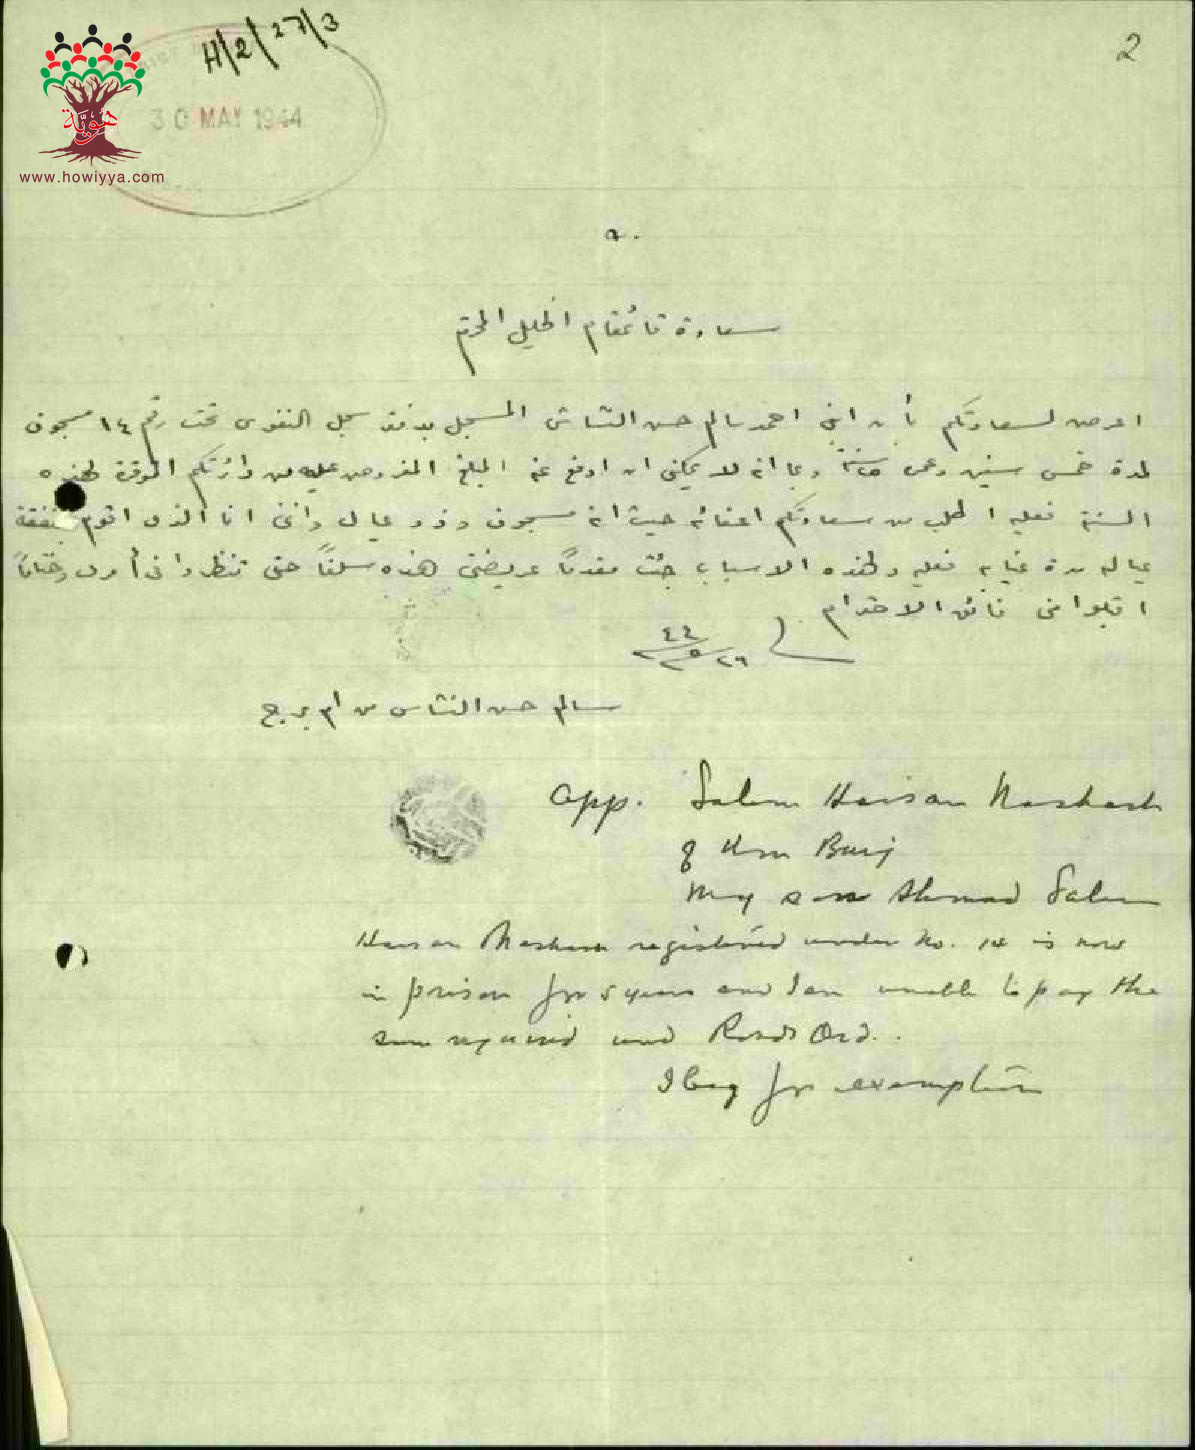 H/2/27/3
2
30 MAY 1944
هويّة
www.howiyya.com
سعادة قائمقام الخليل المحترم
اعرض لسعادتكم بأن ابني احمد سالم حسن النشاش المسجل بدفتر سجل النفوس تحت رقم ١٤ مسجون
لمدة خمس سنين وبما انه لا يمكنني ان ادفع عنه المبلغ المفروض عليه من دائرتكم الموقرة لهذه
السنة فعليه اطلب من سعادتكم اعفائه حيث انه مسجون وذو عيال وانني انا الذي اقوم بنفقة
عياله مدة غيابه فعليه ولهذه الاسباب جئت مقدماً عريضتي هذه سلفاً حتى تنظروا في أمري وختاماً
اقبلوا مني فائق الاحترام
٢٦/٥/٤٤
سالم حسن النشاش من ام برج
App. Salem Hassan Nashash
of Um Burj
My son Ahmad Salem
Hassan Nashash registered under No. 14 is now
in prison for 5 years and I am unable to pay the
sum required und Roads Ord.
I beg for exemption